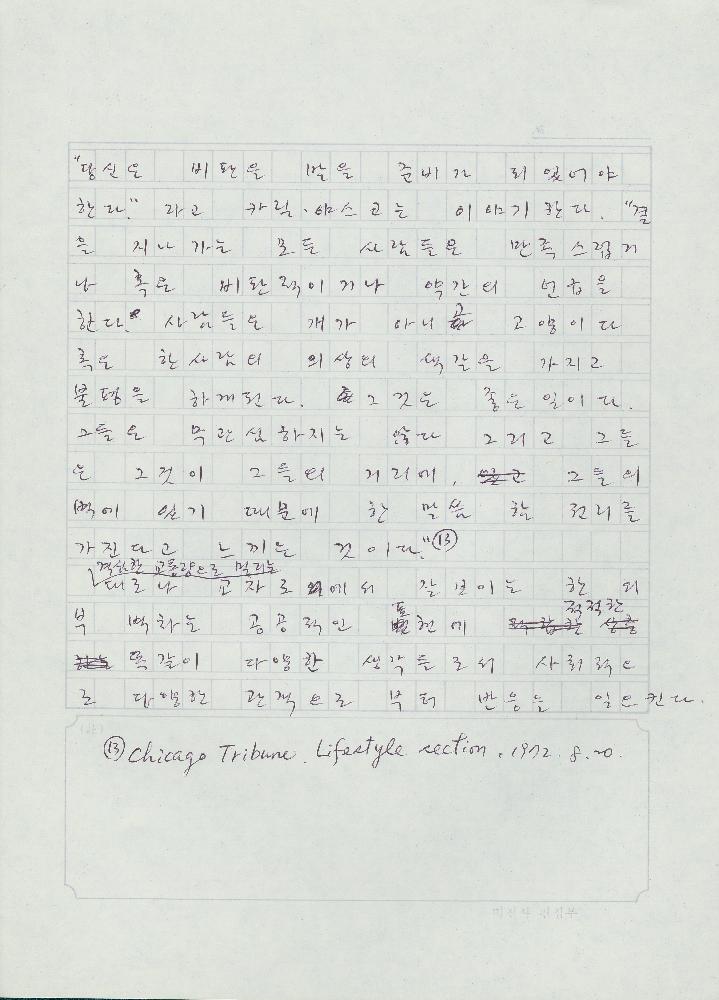 "당신은 비판을 받을 준비가 되있어야
한다." 라고 카릴·야스코는 이야기한다. "곁
을 지나가는 모든 사람들은 만족스럽거
나 혹은 비판적이거나 약간의 언급을
한다." 사람들은 개가 아니고 고양이다
혹은 한사람의 의상의 색갈을 가지고
불평을 하게된다. 그것은 좋은 일이다.
그들은 무관심하지는 않다 그리고 그들
은 그것이 그들의 거리에, 그들의
벽에 있기 때문에 한 말씀 할 권리를
가진다고 느끼는 것이다." ⑬
격심한 교통량으로 밀리는
대로나 교차로에서 잘보이는 한 외
부 벽화는 공공적인 표현에 적적한
똑같이 다양한 생각들로서 사회적으
로 다양한 관객으로 부터 반응을 일으킨다.
(주)
⑬ Chicago Tribune. Lifestyle section, 1972. 8. 20.